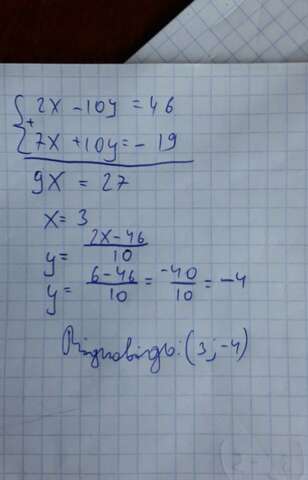 2x - 10y = 46
+
7x + 10y = - 19
9x = 27
x = 3
y = \frac{2x - 46}{10}
y = \frac{6 - 46}{10} = \frac{-40}{10} = -4
Відповідь: (3; -4)